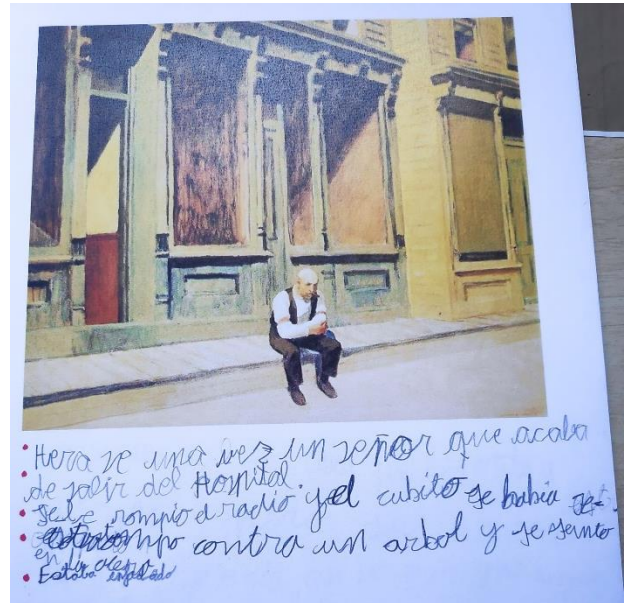 Hera se una vez un señor que acaba
de salir del Hospital.
se le rompio el radio y el cubito se habia
contra un arbol y se sento
en la acera
Estaba enfadado